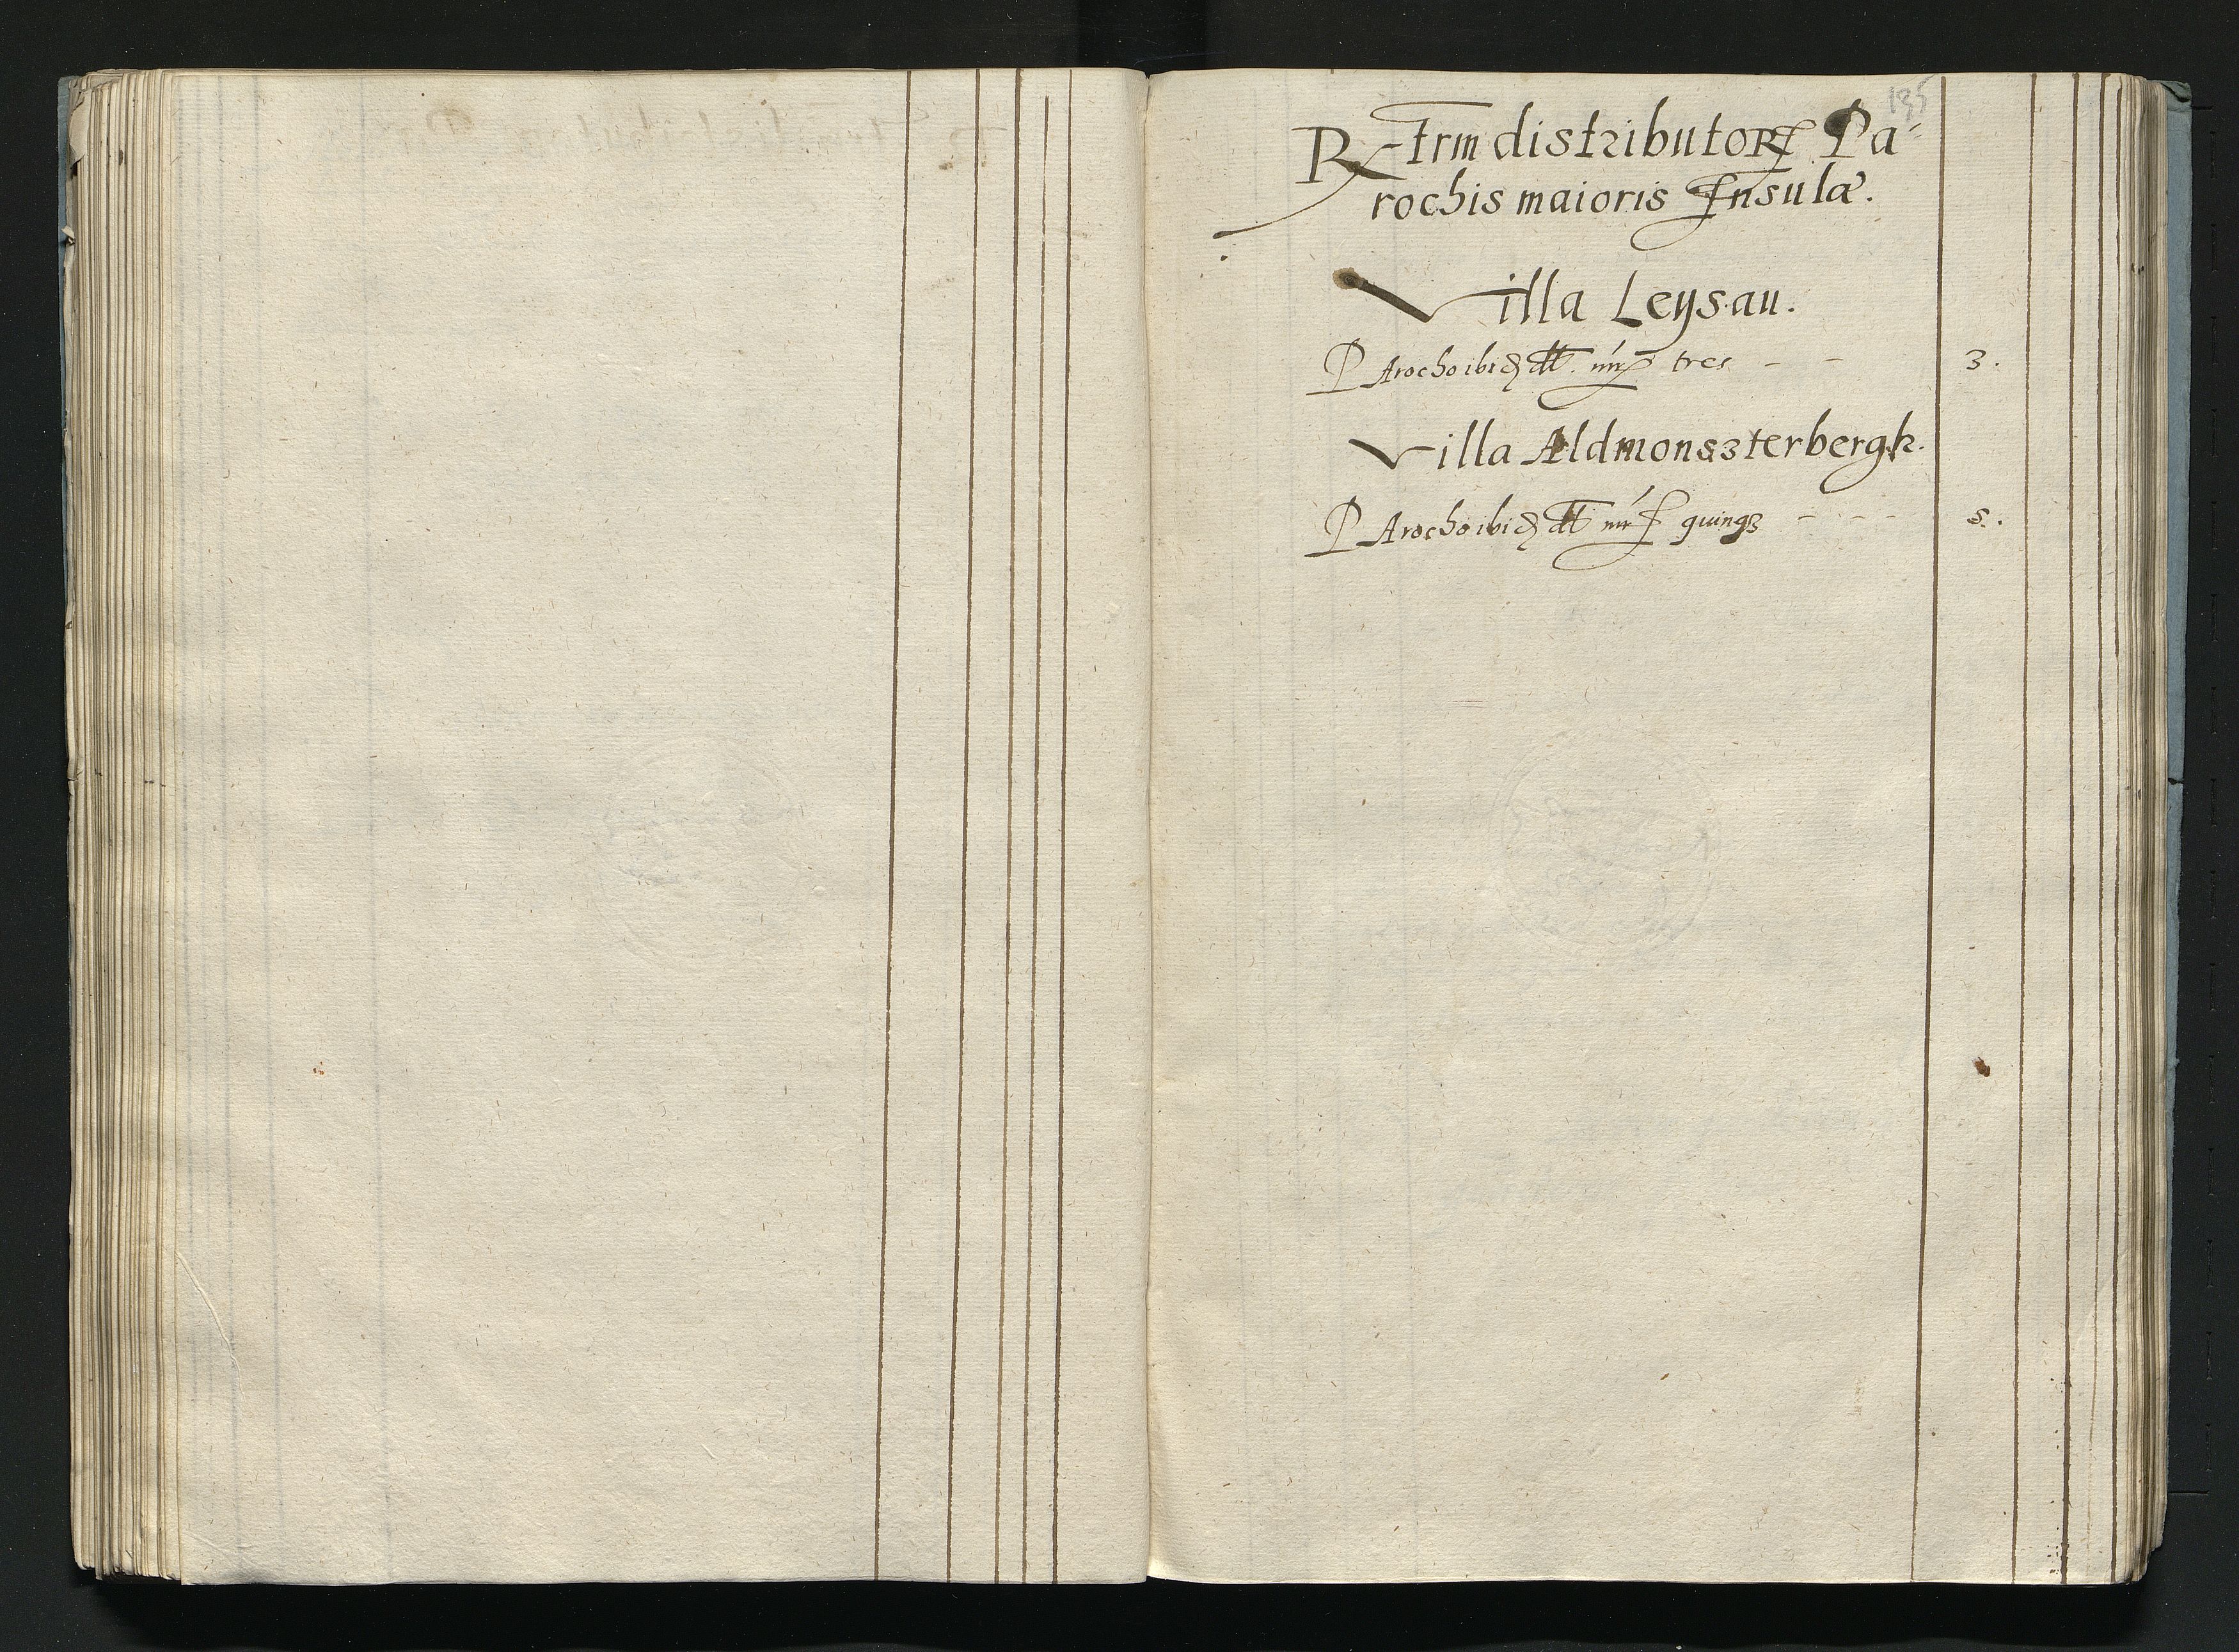 135
Rx-trm distributorꝝ Pa-
rochis maioris Insulæ.
Villa Leysau.
PArocho ibidꝫ dt. mrꝫ tres - - 3.
Villa Aldmonsszterbergk.
PArocho ibidꝫ dt mr quinqꝫ - - - 5.